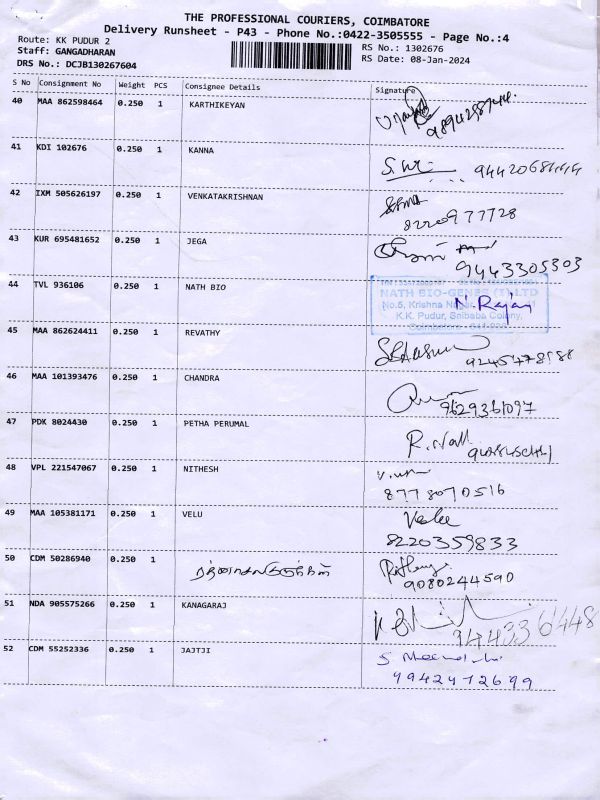 THE PROFESSIONAL COURIERS, COIMBATORE
Delivery Runsheet - P43 - Phone No.:0422-3505555 - Page No.:4
Route: KK PUDUR 2
RS No.: 1302676
Staff: GANGADHARAN
RS Date: 08-Jan-2024
DRS No.: DCJB130267604
S No Consignment No Weight PCS Consignee Details Signature
40 MAA 862598464 0.250 1 KARTHIKEYAN
41 KDI 102676 0.250 1 KANNA
42 IXM 505626197 0.250 1 VENKATAKRISHNAN
8220977728
43 KUR 695481652 0.250 1 JEGA
9443305303
44 TVL 936106 0.250 1 NATH BIO
NATH BIO-GENES (I) LTD
N. Rajan
No.5, Krishna
K.K. Pudur, Saibaba Colony,
45 MAA 862624411 0.250 1 REVATHY
46 MAA 101393476 0.250 1 CHANDRA
9629361097
47 PDK 8024430 0.250 1 PETHA PERUMAL
48 VPL 221547067 0.250 1 NITHESH
8778070516
49 MAA 105381171 0.250 1 VELU
8220359833
50 CDM 50286940 0.250 1
9080244590
51 NDA 905575266 0.250 1 KANAGARAJ
52 CDM 55252336 0.250 1 JAJTJI
9942412699